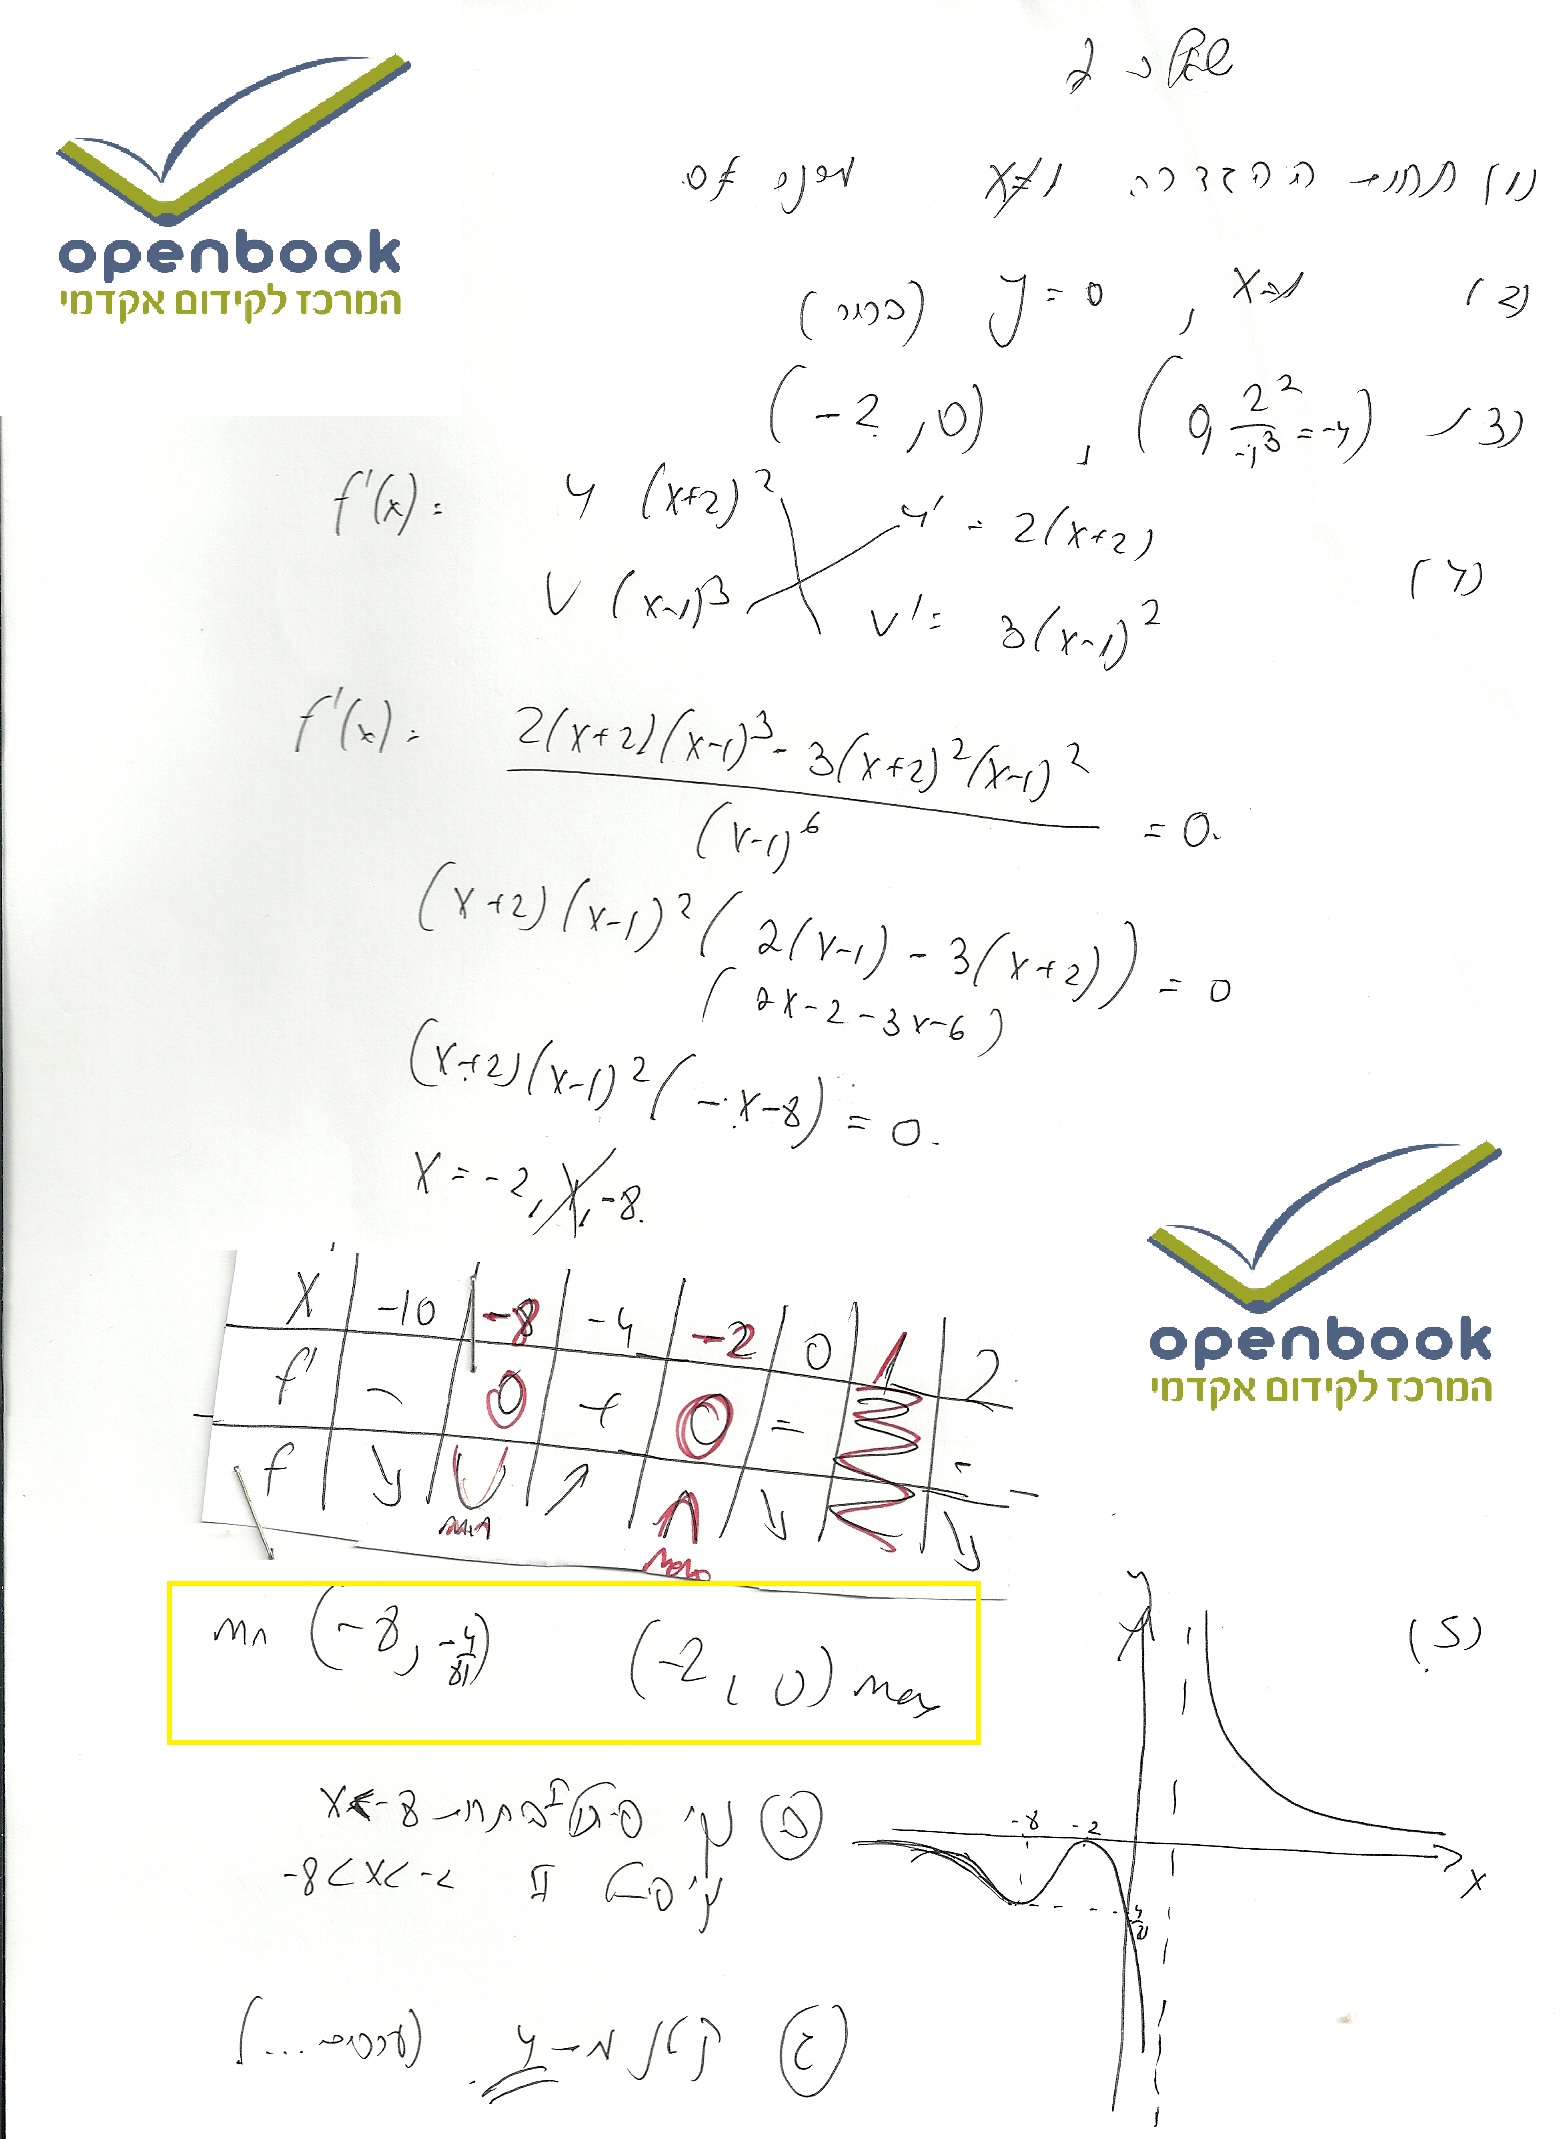 openbook
המרכז לקידום אקדמי
שאלה 2
(1) תחום ההגדרה x≠1 מכנה ≠0
(2) x=1 , y=0 (ברור)
(3) (0, 2²/-1³ = -4) , (-2, 0)
(4)
f'(x) = u (x+2)² u' = 2(x+2)
v (x-1)³ v' = 3(x-1)²
f'(x) = 2(x+2)(x-1)³ - 3(x+2)²(x-1)² / (x-1)⁶ = 0.
(x+2)(x-1)²(2(x-1) - 3(x+2)) = 0
(2x-2-3x-6)
(x+2)(x-1)²(-x-8) = 0.
x = -2, 1, -8.
openbook
המרכז לקידום אקדמי
x -10 -8 -4 -2 0 1 2
f' - 0 + 0 - -
f ↘ ∪ ↗ ∩ ↘ ↘
min max
min (-8, -4/81) (-2, 0) max
(5)
y
x
-8 -2
4/81
ב
x<-8
-8<x<-2 II
ג קטן מ-4